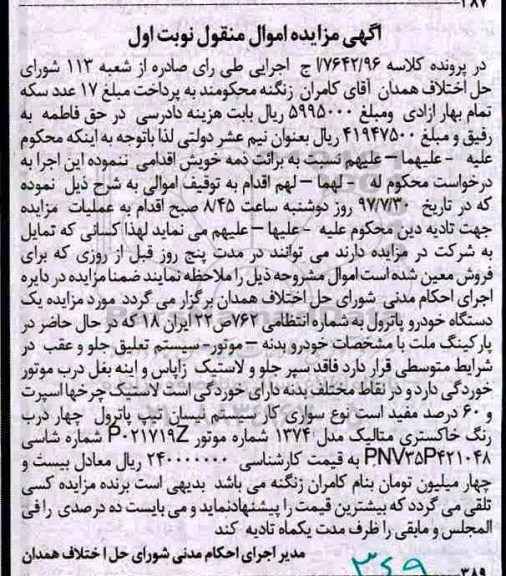 ۱۸۷
آگهی مزایده اموال منقول نوبت اول
در پرونده کلاسه ۷۶۴۲/۹۶/ا ج اجرایی طی رای صادره از شعبه ۱۱۳ شورای
حل اختلاف همدان آقای کامران زنگنه محکومند به پرداخت مبلغ ۱۷ عدد سکه
تمام بهار ازادی ومبلغ ۵۹۹۵۰۰۰ ریال بابت هزینه دادرسی در حق فاطمه به
رفیق و مبلغ ۴۱۹۴۷۵۰۰ ریال بعنوان نیم عشر دولتی لذا باتوجه به اینکه محکوم
علیه - علیهما – علیهم نسبت به برائت ذمه خویش اقدامی ننموده این اجرا به
درخواست محکوم له - لهما – لهم اقدام به توقیف اموالی به شرح ذیل نموده
که در تاریخ ۹۷/۷/۳۰ روز دوشنبه ساعت ۸/۴۵ صبح اقدام به عملیات مزایده
جهت تادیه دین محکوم علیه - علیها – علیهم می نماید لهذا کسانی که تمایل
به شرکت در مزایده دارند می توانند در مدت پنج روز قبل از روزی که برای
فروش معین شده است اموال مشروحه ذیل را ملاحظه نمایند ضمنا مزایده در دایره
اجرای احکام مدنی شورای حل اختلاف همدان برگزار می گردد مورد مزایده یک
دستگاه خودرو پاترول به شماره انتظامی ۷۶۲ص۲۲ ایران ۱۸ که در حال حاضر در
پارکینگ ملت با مشخصات خودرو بدنه – موتور- سیستم تعلیق جلو و عقب در
شرایط متوسطی قرار دارد فاقد سپر جلو و لاستیک زاپاس و اینه بغل درب موتور
خوردگی دارد و در نقاط مختلف بدنه دارای خوردگی است لاستیک چرخها اسپرت
و ۶۰ درصد مفید است نوع سواری کار سیستم نیسان تیپ پاترول چهار درب
رنگ خاکستری متالیک مدل ۱۳۷۴ شماره موتور P۰۲۱۷۱۹Z شماره شاسی
PNV۳۵P۴۲۱۰۴۸ به قیمت کارشناسی ۲۴۰۰۰۰۰۰۰ ریال معادل بیست و
چهار میلیون تومان بنام کامران زنگنه می باشد بدیهی است برنده مزایده کسی
تلقی می گردد که بیشترین قیمت را پیشنهادنماید و می بایست ده درصدی را فی
المجلس و مابقی را ظرف مدت یکماه تادیه کند
مدیر اجرای احکام مدنی شورای حل اختلاف همدان
۳۶۹
۳۸۹